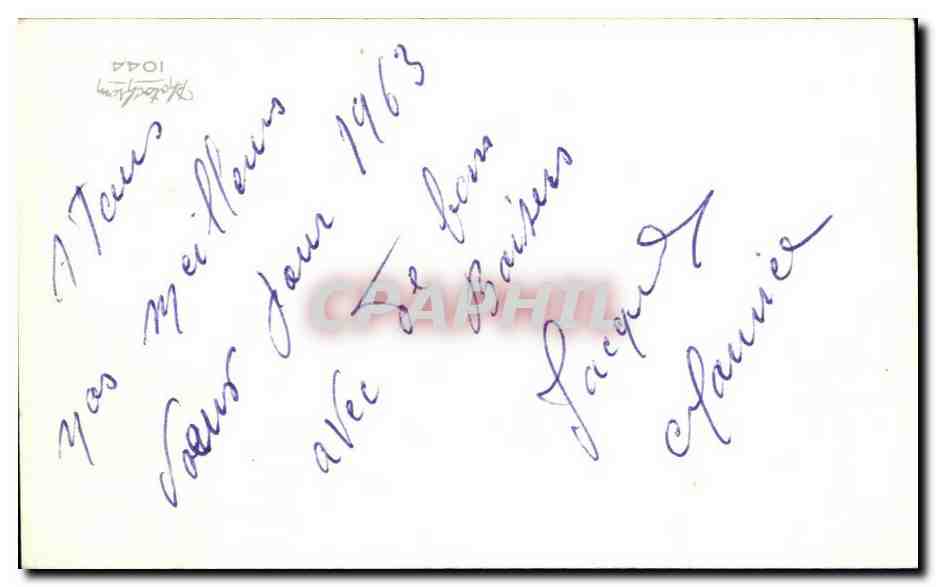 A Tous
nos meilleurs
Voeux pour 1963
avec de bons
Baisers
Jacques
Maurice
CPAPHIL
Photochrom
1044